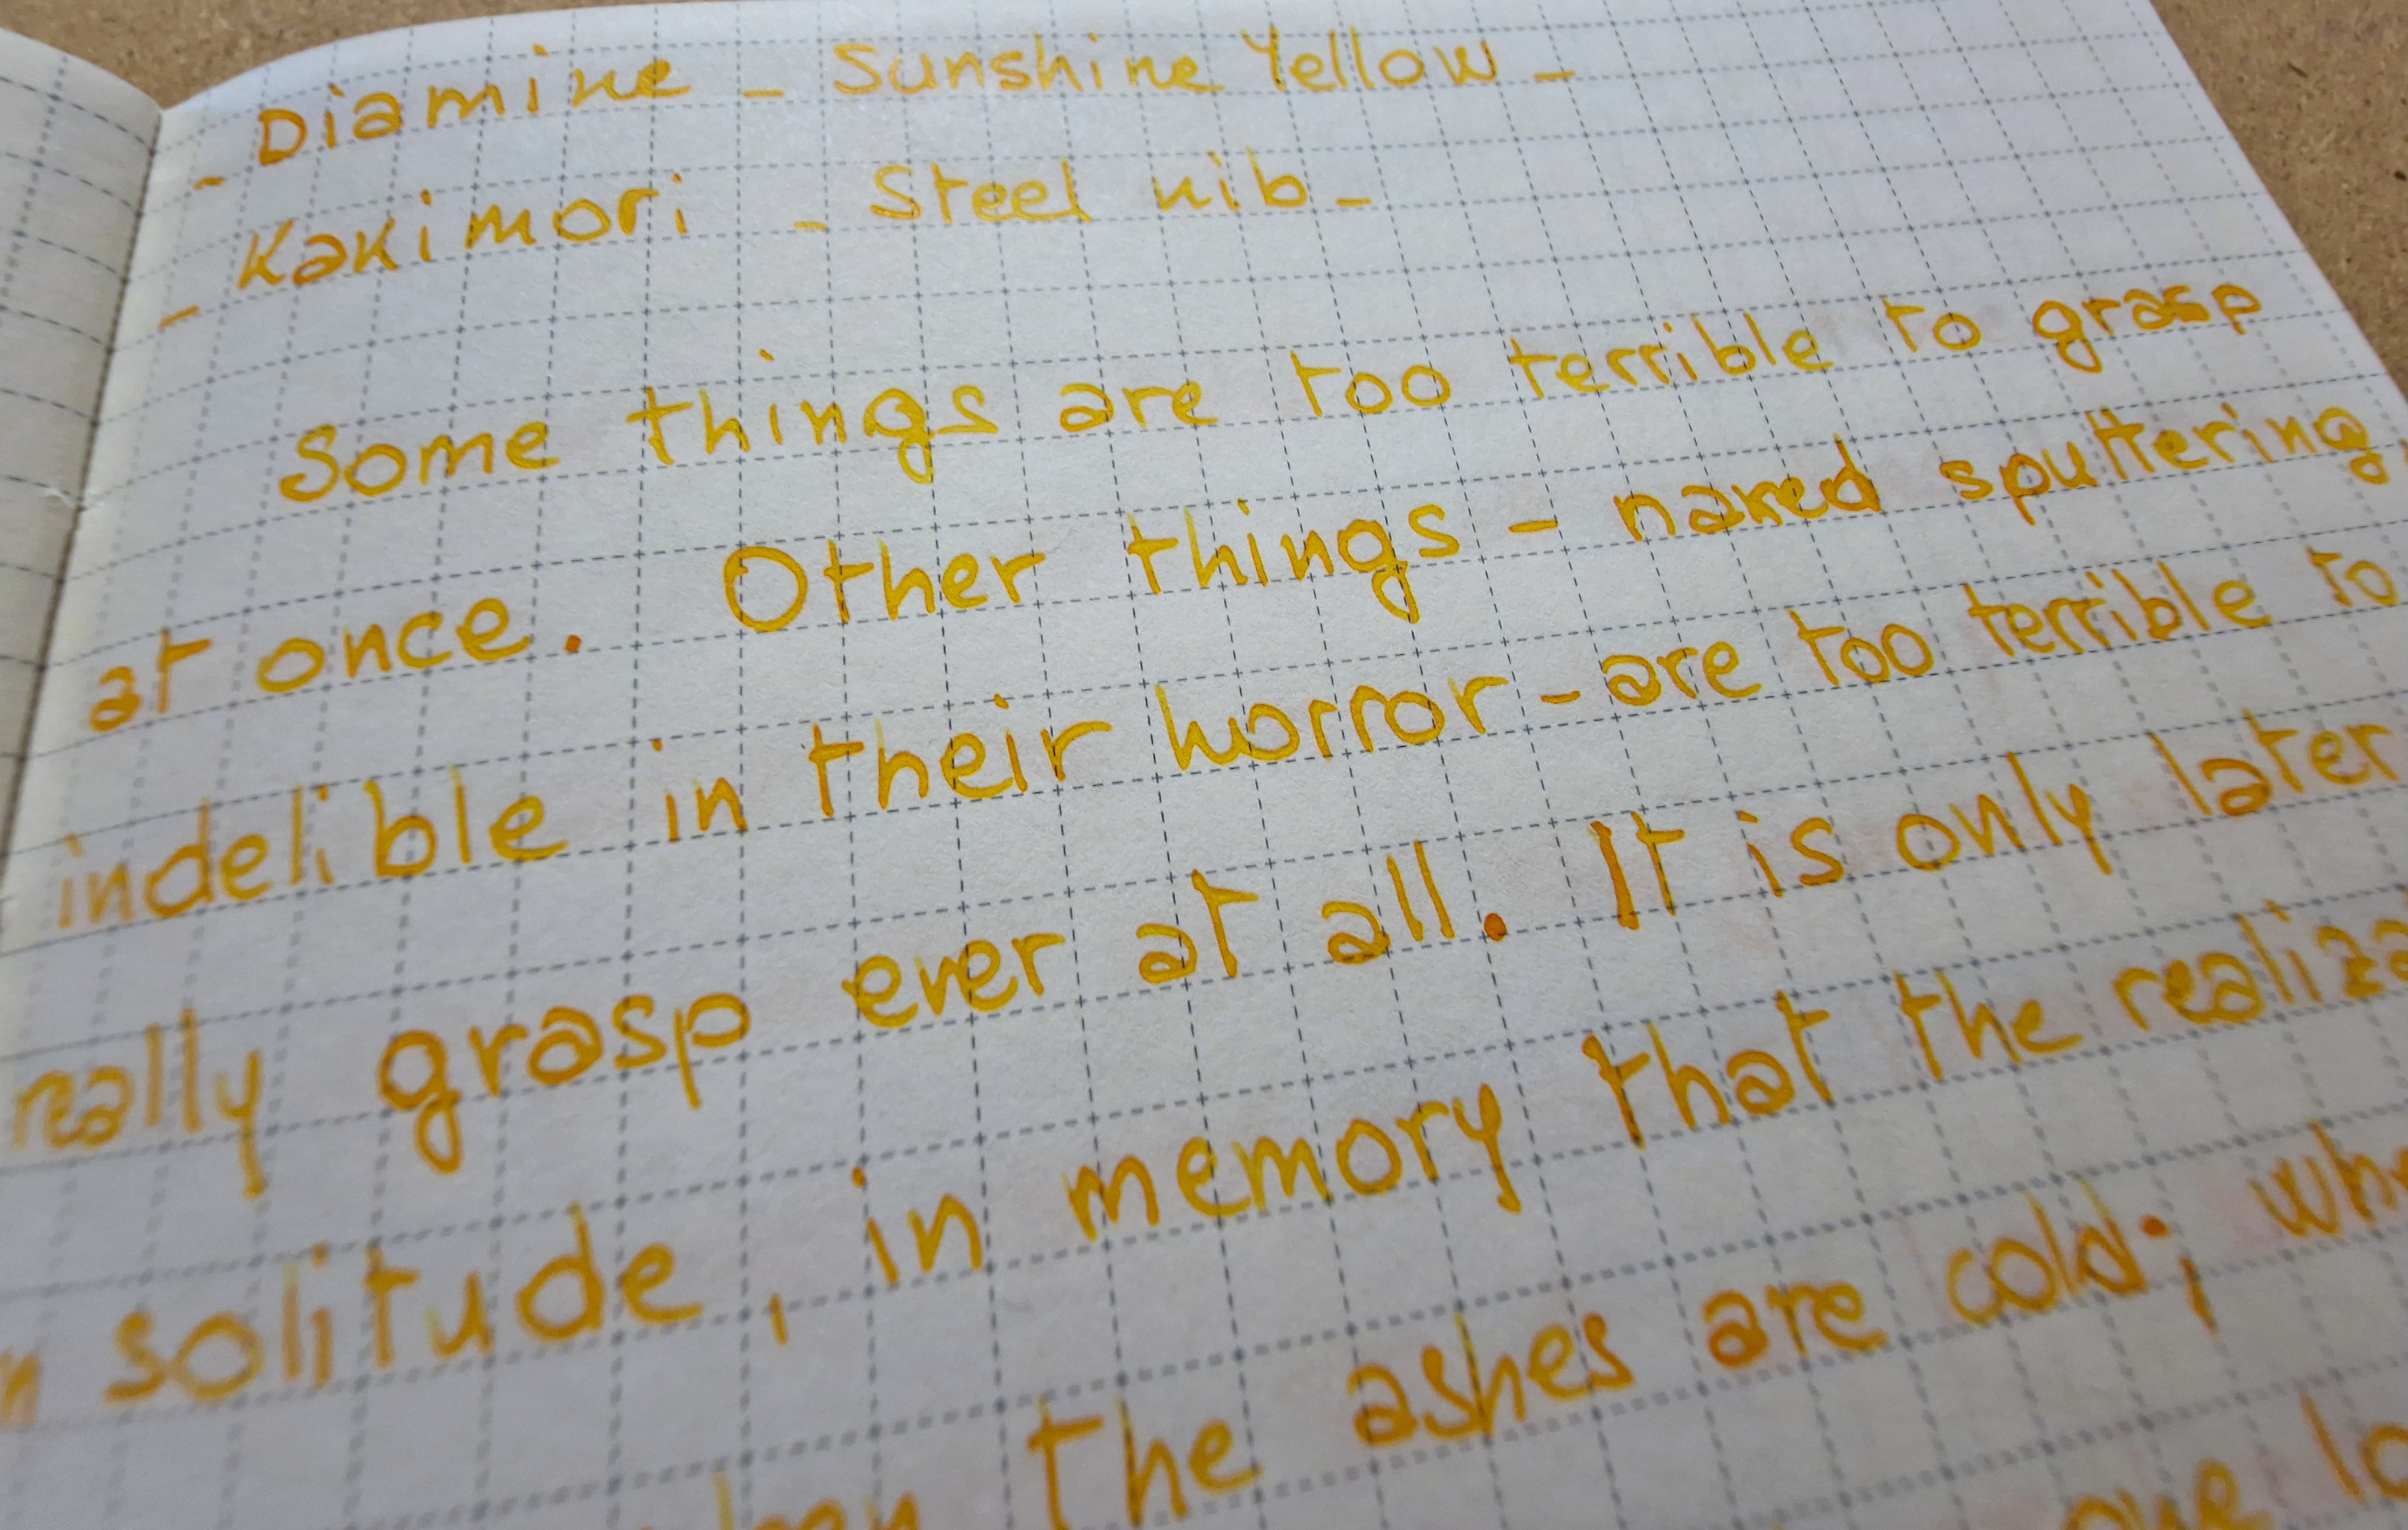 - Diamine - Sunshine Yellow -
- Kakimori - Steel nib -
Some things are too terrible to grasp
at once. Other things - naked sputtering,
indelible in their horror - are too terrible to
really grasp ever at all. It is only later
solitude, in memory that the
the ashes are cold; 
one